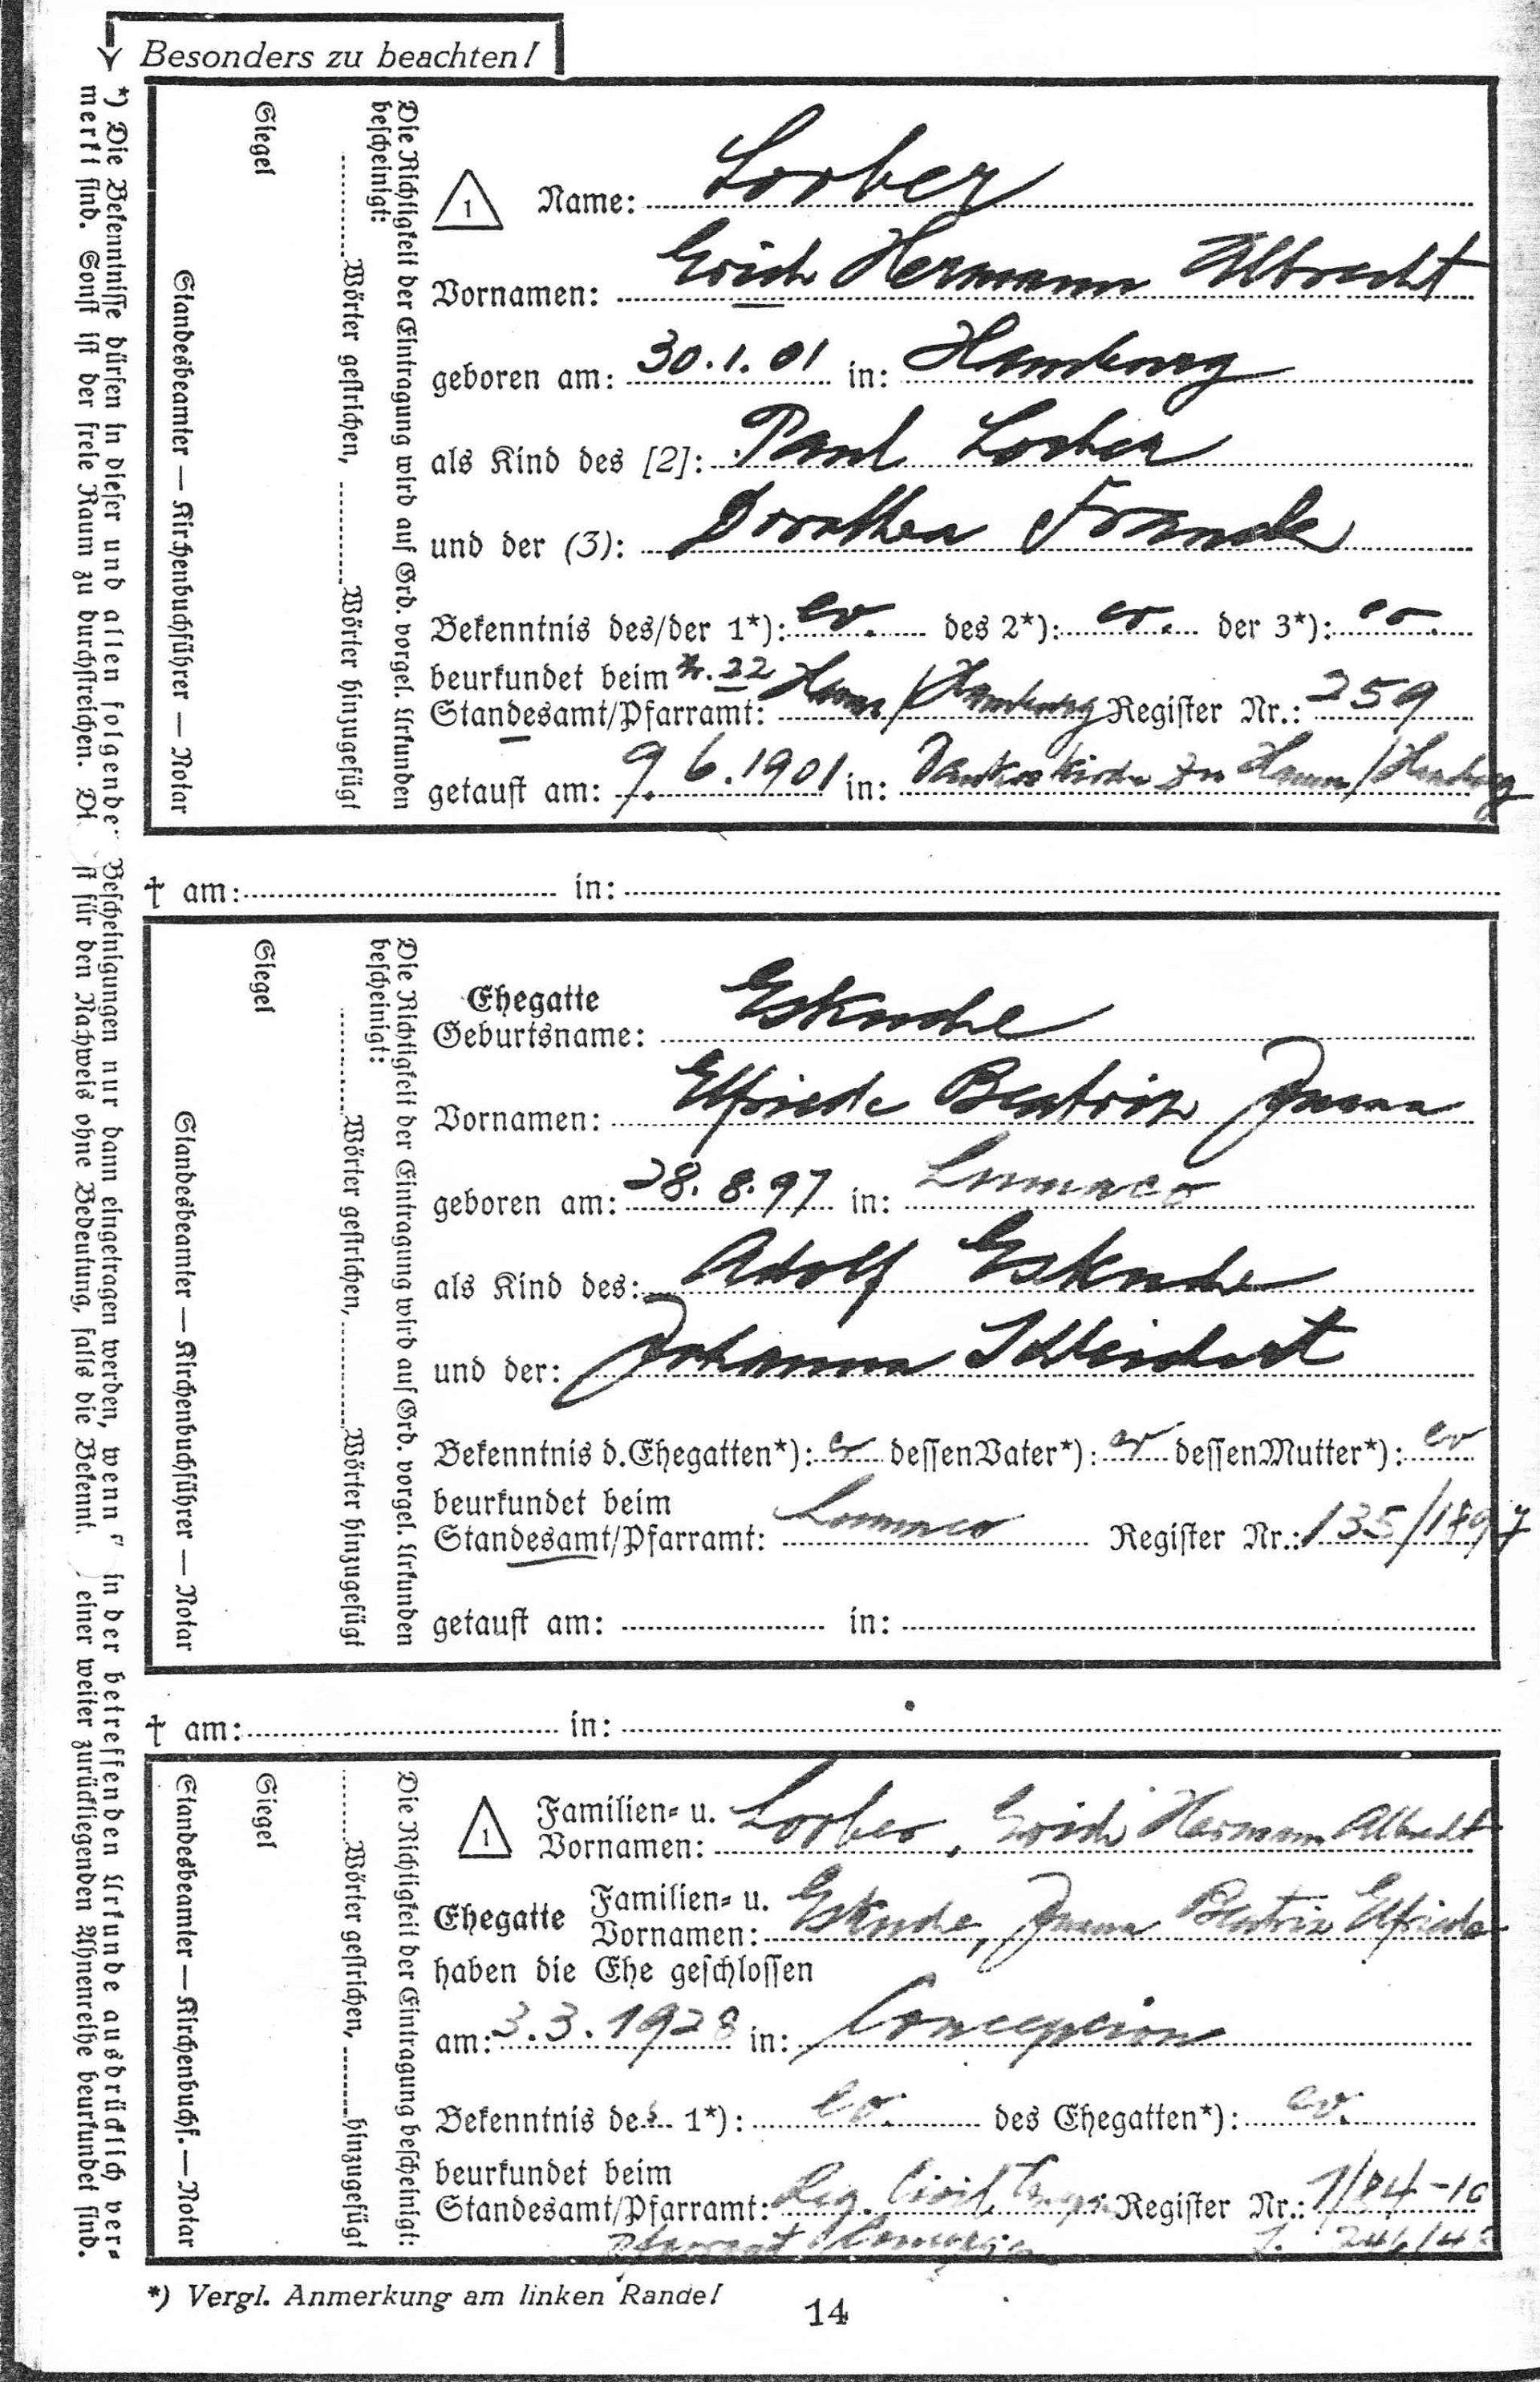 Besonders zu beachten!
*) Die Bekenntnisse dürfen in dieser und allen folgenden Bescheinigungen nur dann eingetragen werden, wenn in der betreffenden Urkunde ausdrücklich ver-
merkt sind. Sonst ist der freie Raum zu durchstreichen. für den Nachweis ohne Bedeutung, falls die Bekennt. einer weiter zurückliegenden Ahnenreihe beurkundet sind.
1 Name: Lorber
Vornamen: Erich Hermann Albrecht
geboren am: 30.1.01 in: Hamburg
als Kind des [2]: Paul Lorber
und der (3): Dorothea Francke
Bekenntnis des/der 1*): ev. des 2*): ev. der 3*): ev.
beurkundet beim Nr. 22
Standesamt/Pfarramt: Hamm/Hamburg Register Nr.: 259
getauft am: 9.6.1901 in: Dankeskirche zu Hamm/Hamburg
Die Richtigkeit der Eintragung wird auf Grd. vorgel. Urkunden
bescheinigt:
Wörter gestrichen, Wörter hinzugefügt
Siegel
Standesbeamter — Kirchenbuchführer — Notar
† am: in:
Ehegatte
Geburtsname: Eskuche
Vornamen: Elfriede Beatrix Juana
geboren am: 28.8.97 in: Lumaco
als Kind des: Adolf Eskuche
und der: Johanna
Bekenntnis d.Ehegatten*): ev dessen Vater*): ev dessen Mutter*): ev
beurkundet beim
Standesamt/Pfarramt: Lumaco Register Nr.: 135/1897
getauft am: in:
Die Richtigkeit der Eintragung wird auf Grd. vorgel. Urkunden
bescheinigt:
Wörter gestrichen, Wörter hinzugefügt
Siegel
Standesbeamter — Kirchenbuchführer — Notar
† am: in:
1 Familien- u.
Vornamen: Lorber, Erich Hermann Albrecht
Ehegatte Familien- u.
Vornamen: Eskuche, Juana Beatrix Elfriede
haben die Ehe geschlossen
am: 3.3.1928 in: Concepcion
Bekenntnis des 1*): ev. des Ehegatten*): ev.
beurkundet beim
Standesamt/Pfarramt: Civil Register Nr.: 1/84-10
Pfarramt
Die Richtigkeit der Eintragung bescheinigt:
Wörter gestrichen, hinzugefügt
Siegel
Standesbeamter — Kirchenbuchf. — Notar
*) Vergl. Anmerkung am linken Rande!
14